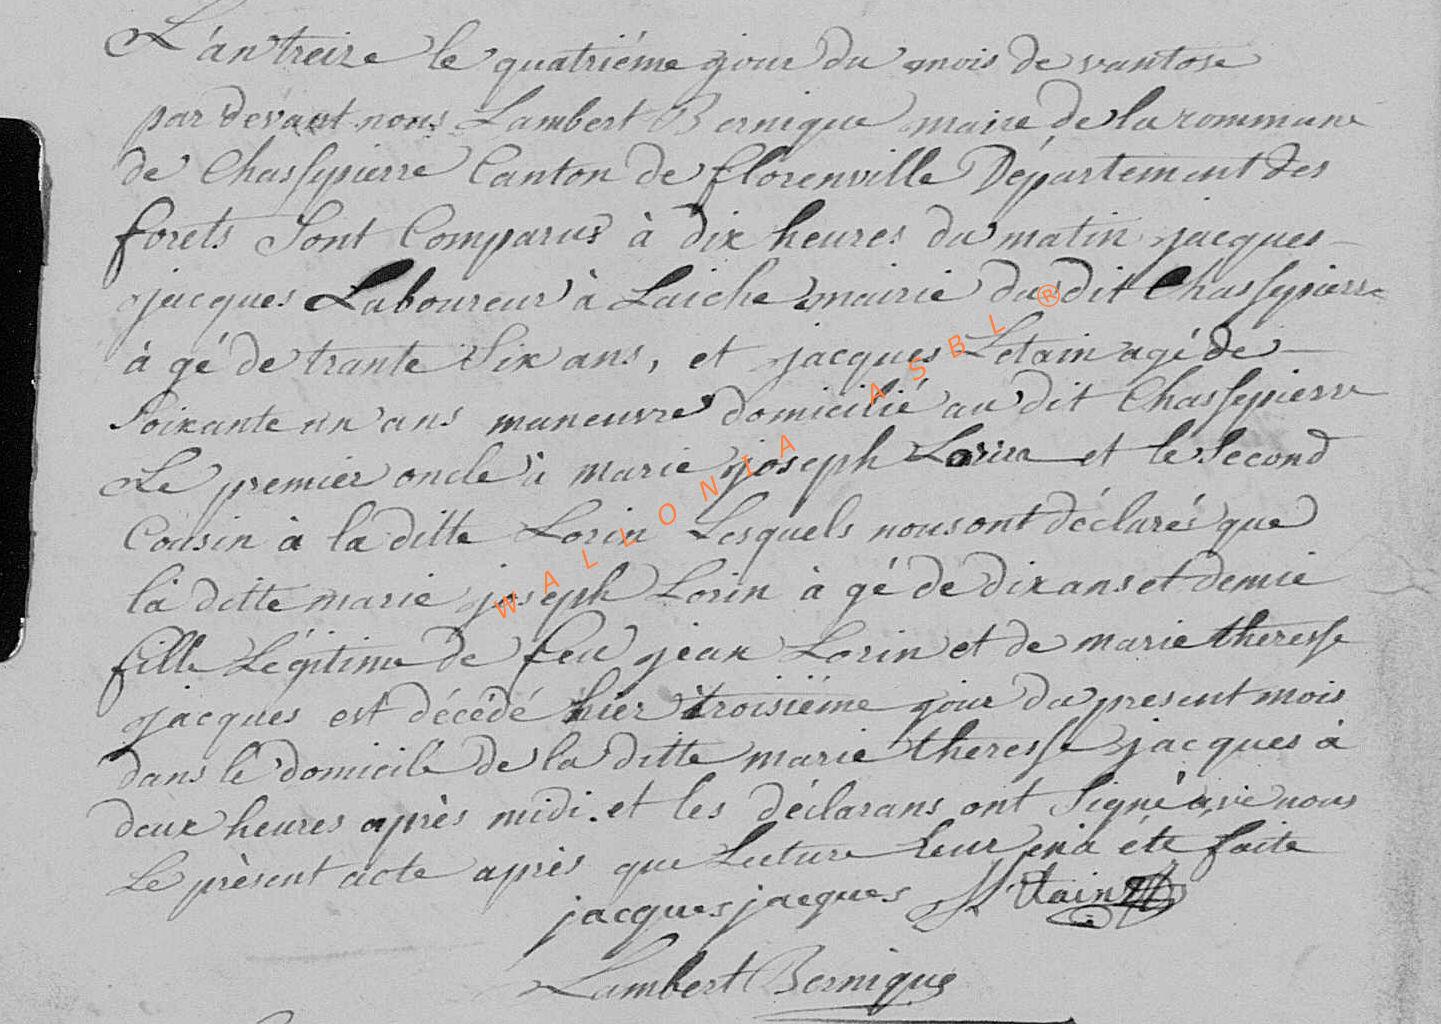 L'an treize le quatriéme jour du mois de vantose
par devant nous Lambert Bernique maire de la commune
de Chassepierre Canton de florenville Département des
forets Sont Comparus à dix heures du matin jacques
jacques Laboureur à Laiche mairie du dit Chassepierre
à gé de trante Six ans, et jacques Letain agé de
Soixante un ans maneuvre domicilié au dit Chassepierre
Le premier oncle à marie joseph Lorin et le Second
Cousin à la ditte Lorin Lesquels nous ont déclarés que
la ditte marie joseph Lorin à gé de dix ans et demie
fille Légitime de feu jean Lorin et de marie theresse
jacques est décédé hier troisiéme jour du present mois
dans le domicile de la ditte marie theresse jacques à
deux heures après midi. et les déclarans ont Signé avec nous
Le présent acte après que Lecture leur en a été faite
jacques jacques Letain
Lambert Bernique
WALLONIA ASBL ®